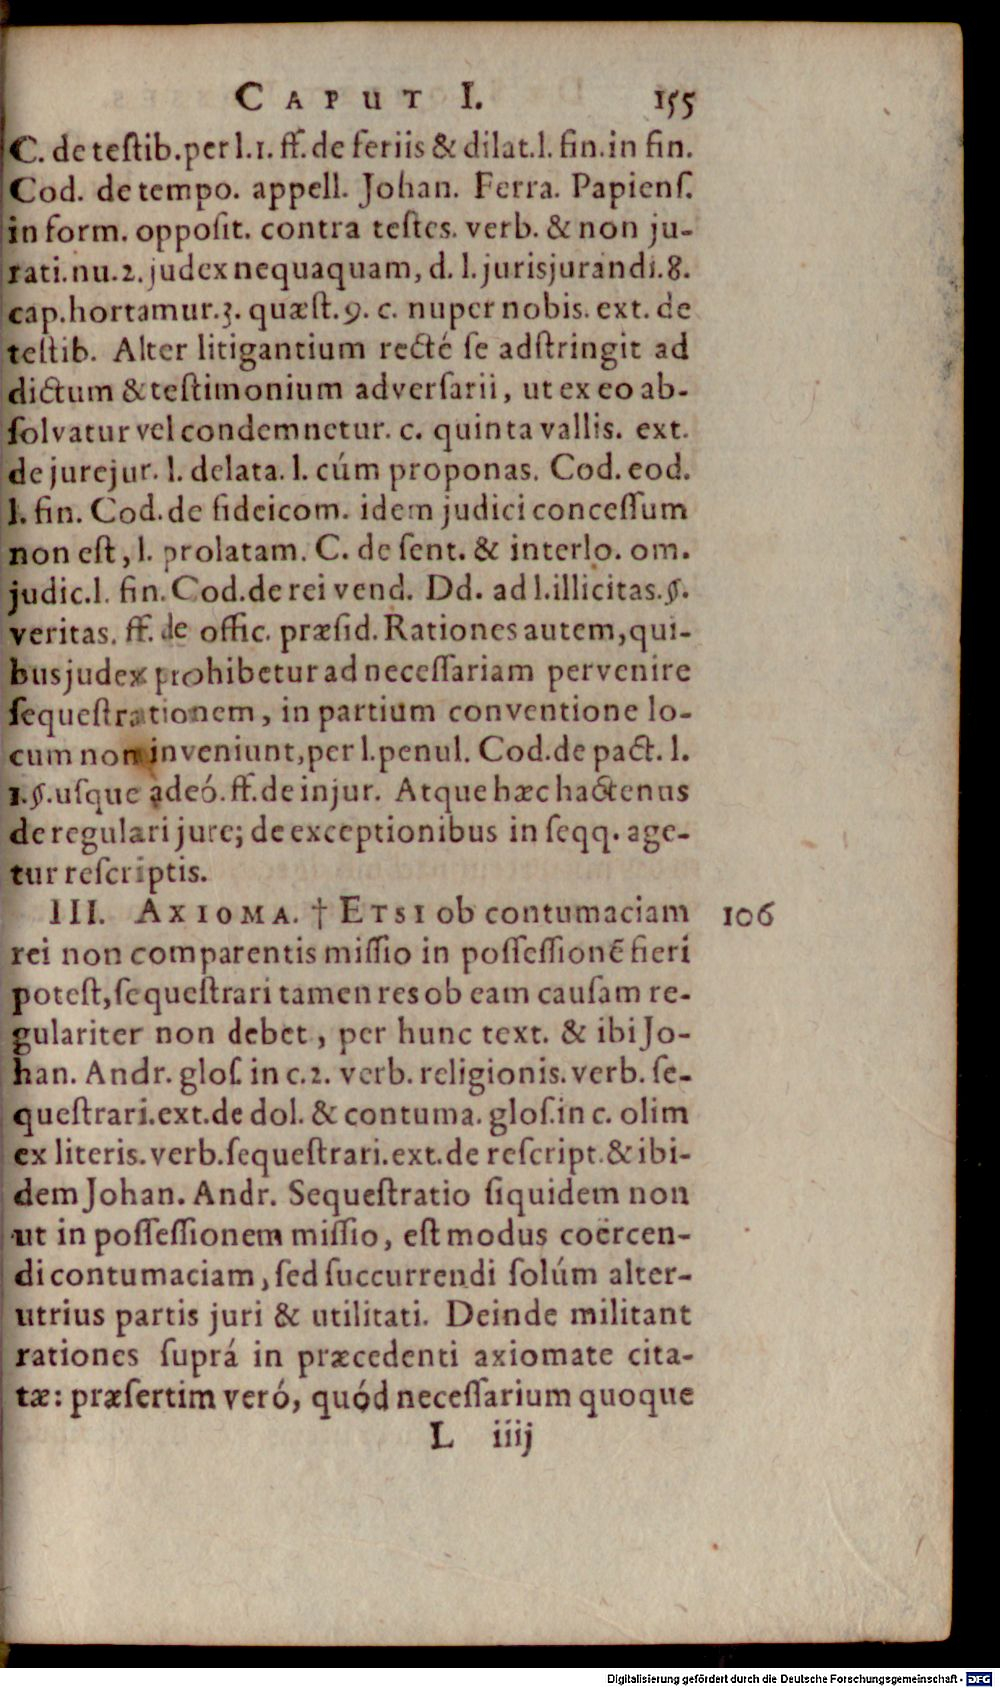 CAPUT I. 155
C. de teſtib. per l. 1. ff. de feriis & dilat. l. fin. in fin.
Cod. de tempo. appell. Johan. Ferra. Papienſ.
in form. oppoſit. contra teſtes. verb. & non ju-
rati. nu. 2. judex nequaquam, d. l. jurisjurandi. 8.
cap. hortamur. 3. quæſt. 9. c. nuper nobis. ext. de
teſtib. Alter litigantium recté ſe adſtringit ad
dictum & teſtimonium adverſarii, ut ex eo ab-
ſolvatur vel condemnetur. c. quinta vallis. ext.
de jurejur. l. delata. l. cúm proponas. Cod. eod.
l. fin. Cod. de fideicom. idem judici conceſſum
non eſt, l. prolatam. C. de ſent. & interlo. om.
judic. l. fin. Cod. de rei vend. Dd. ad l. illicitas. §.
veritas. ff. de offic. præſid. Rationes autem, qui-
bus judex prohibetur ad neceſſariam pervenire
ſequeſtrationem, in partium conventione lo-
cum non inveniunt, per l. penul. Cod. de pact. l.
1. §. uſque adeó. ff. de injur. Atque hæc hactenus
de regulari jure; de exceptionibus in ſeqq. age-
tur reſcriptis.
III. AXIOMA. † ETSI ob contumaciam 106
rei non comparentis miſſio in poſſeſſionē fieri
poteſt, ſequeſtrari tamen res ob eam cauſam re-
gulariter non debet, per hunc text. & ibi Jo-
han. Andr. gloſ. in c. 2. verb. religionis. verb. ſe-
queſtrari. ext. de dol. & contuma. gloſ. in c. olim
ex literis. verb. ſequeſtrari. ext. de reſcript. & ibi-
dem Johan. Andr. Sequeſtratio ſiquidem non
ut in poſſeſſionem miſſio, eſt modus coërcen-
di contumaciam, ſed ſuccurrendi ſolúm alter-
utrius partis juri & utilitati. Deinde militant
rationes ſuprá in præcedenti axiomate cita-
tæ: præſertim veró, quód neceſſarium quoque
L iiij
Digitalisierung gefördert durch die Deutsche Forschungsgemeinschaft - DFG